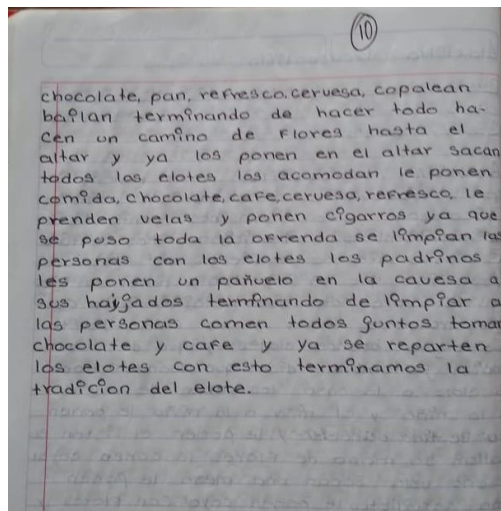 10
chocolate, pan, refresco, cervesa, copalean
bailan terminando de hacer todo ha-
cen un camino de flores hasta el
altar y ya los ponen en el altar sacan
todos los elotes los acomodan le ponen
comida, chocolate, cafe, cervesa, refresco, le
prenden velas y ponen cigarros ya que
se puso toda la ofrenda se limpian las
personas con los elotes los padrinos
les ponen un pañuelo en la cavesa a
sus haijados terminando de limpiar a
las personas comen todos juntos toman
chocolate y cafe y ya se reparten
los elotes con esto terminamos la
tradicion del elote.